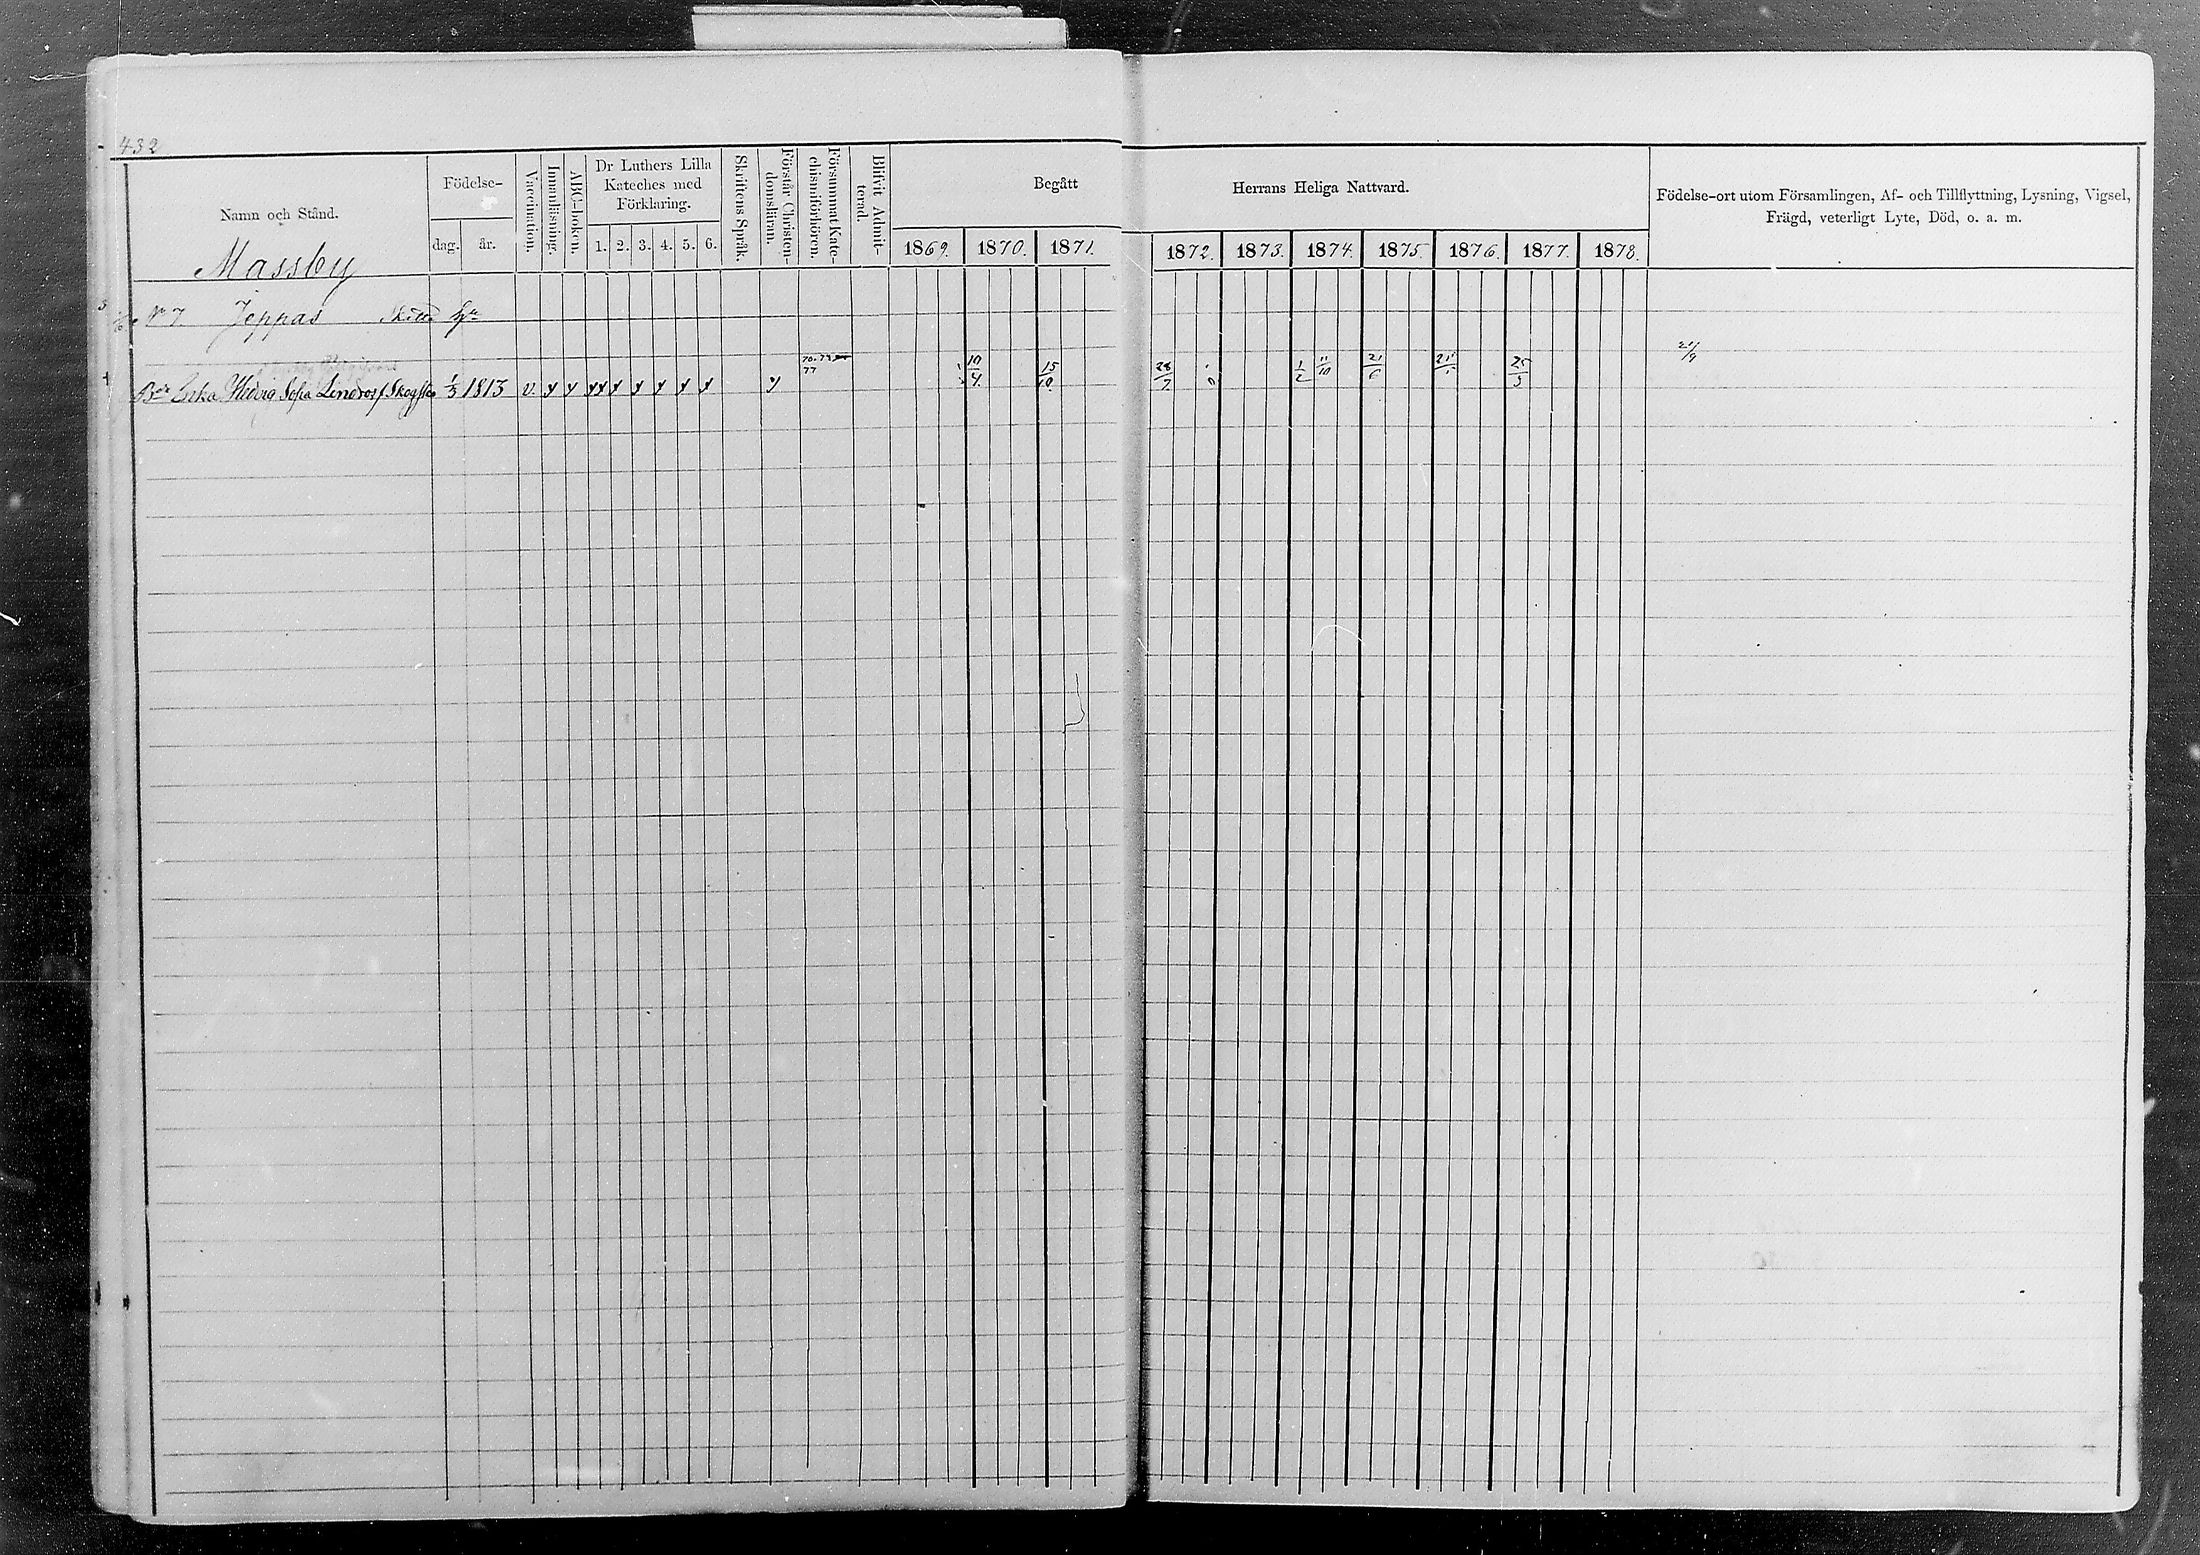 432
Namn och Stånd.
Födelse-
dag. år.
Vaccination.
Innanläsning.
ABC-boken.
Dr Luthers Lilla
Kateches med
Förklaring.
1. 2. 3. 4. 5. 6.
Skriftens Språk.
Förstår Christen-
domsläran.
Försummat Kate-
chismiförhören.
Blifvit Admit-
terad.
Begått Herrans Heliga Nattvard.
1869. 1870. 1871. 1872. 1873. 1874. 1875. 1876. 1877. 1878.
Födelse-ort utom Församlingen, Af- och Tillflyttning, Lysning, Vigsel,
Frägd, veterligt Lyte, Död, o. a. m.
Massby
No 7. Jeppas
Erika Hedvig Sofia 1813 v.
77
10/4 15/10 28/7 1/2 11/10 21/6 25/3